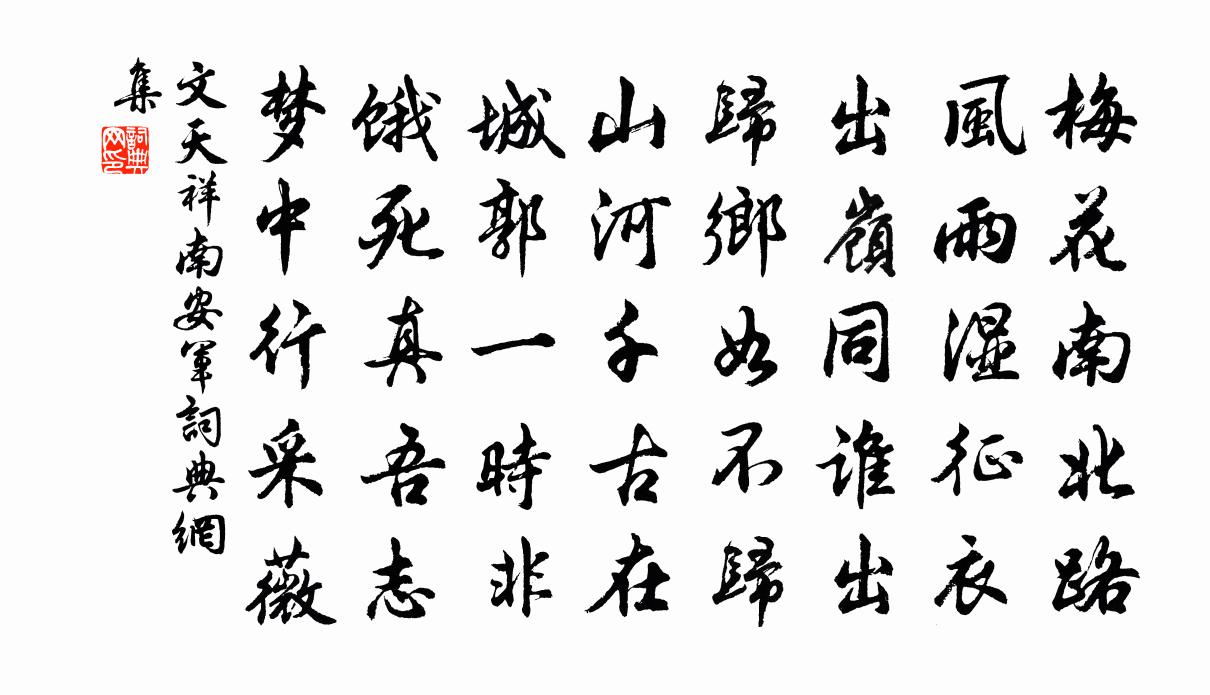 梅花南北路
風雨濕征衣
出嶺同誰出
歸鄉如不歸
山河千古在
城郭一時非
餓死真吾志
梦中行采薇
文天祥南安軍詞典網
集
詞典
网印